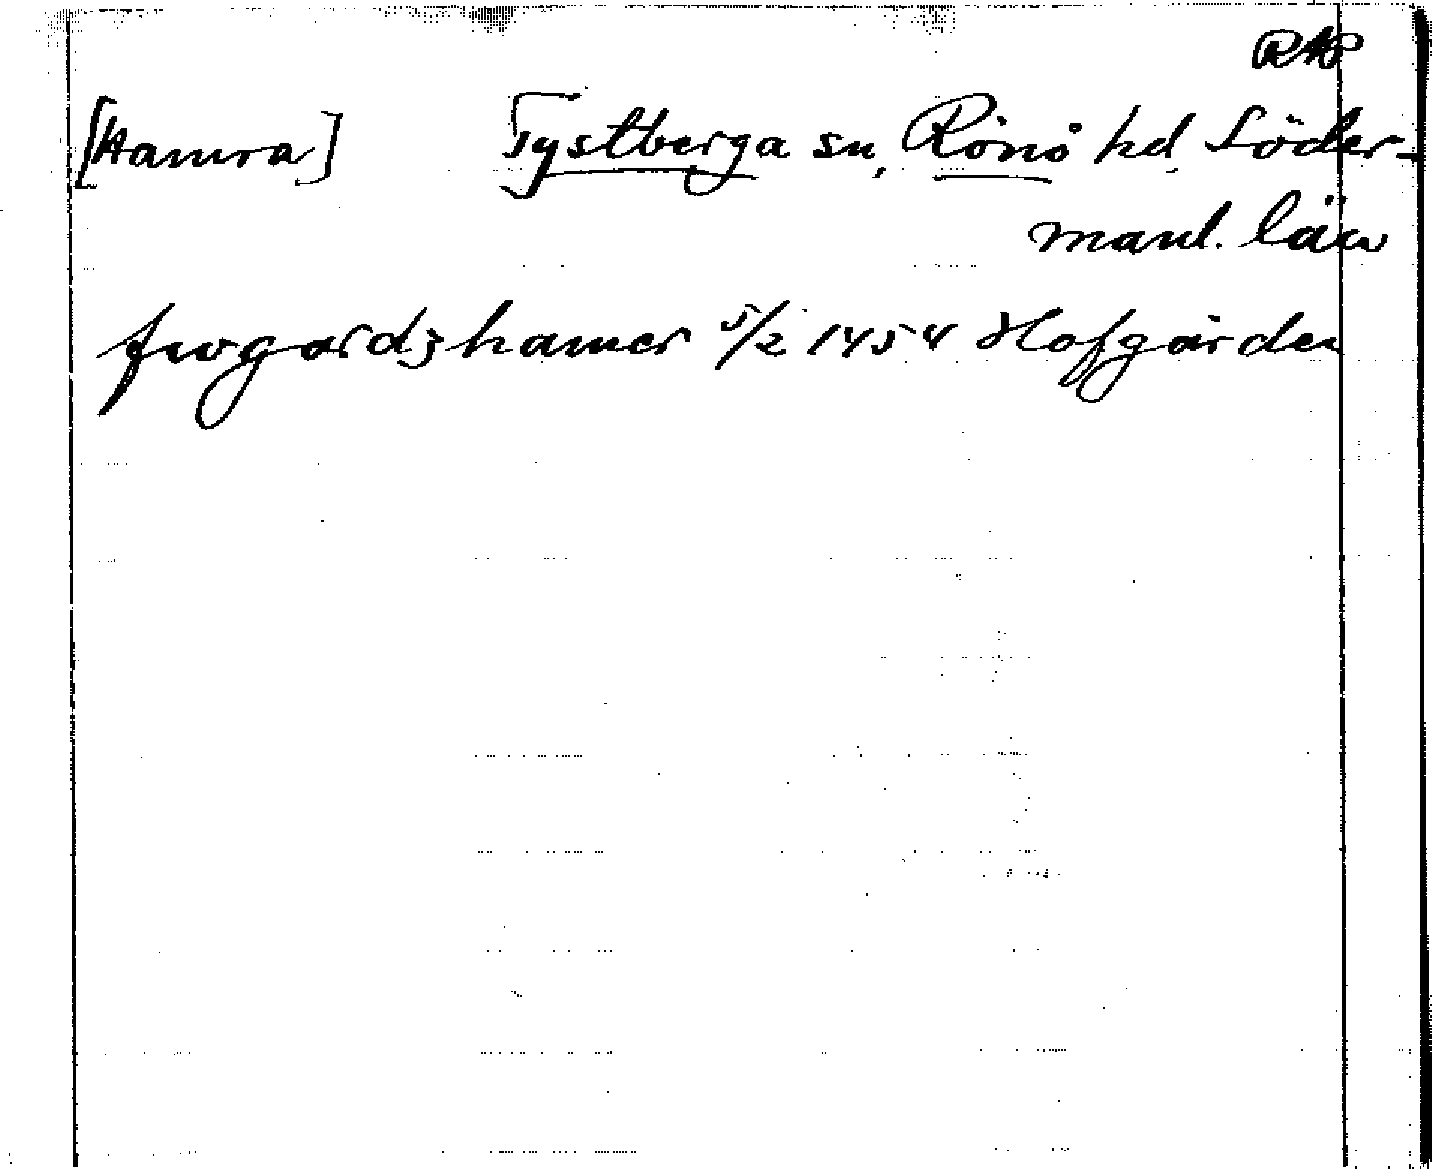 RAP
[Hamra] Tystberga sn, Rönö hd, Söder-
manl. län
frvgardzhamer 5/2 1454 Hofgården